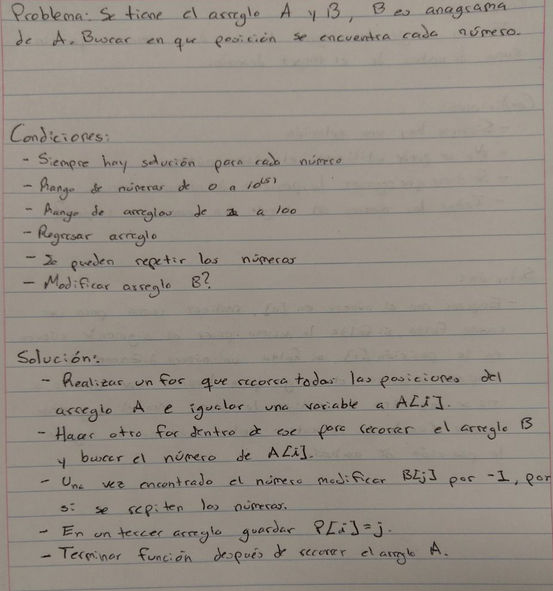 Problema: Se tiene el arreglo A y B, B es anagrama
de A. Buscar en que posición se encuentra cada número.
Condiciones:
- Siempre hay solución para cada número
- Rango de números de 0 a 10^(5)
- Rango de arreglos de a 100
- Regresar arreglo
- Se pueden repetir los números
- Modificar arreglo B?
Solución:
- Realizar un for que recorra todas las posiciones del
arreglo A e igualar una variable a A[i].
- Hacer otro for dentro de ese para recorrer el arreglo B
y buscar el número de A[i].
- Una vez encontrado el número modificar B[j] por -1, por
si se repiten los números.
- En un tercer arreglo guardar P[i]=j.
- Terminar función después de recorrer el arreglo A.